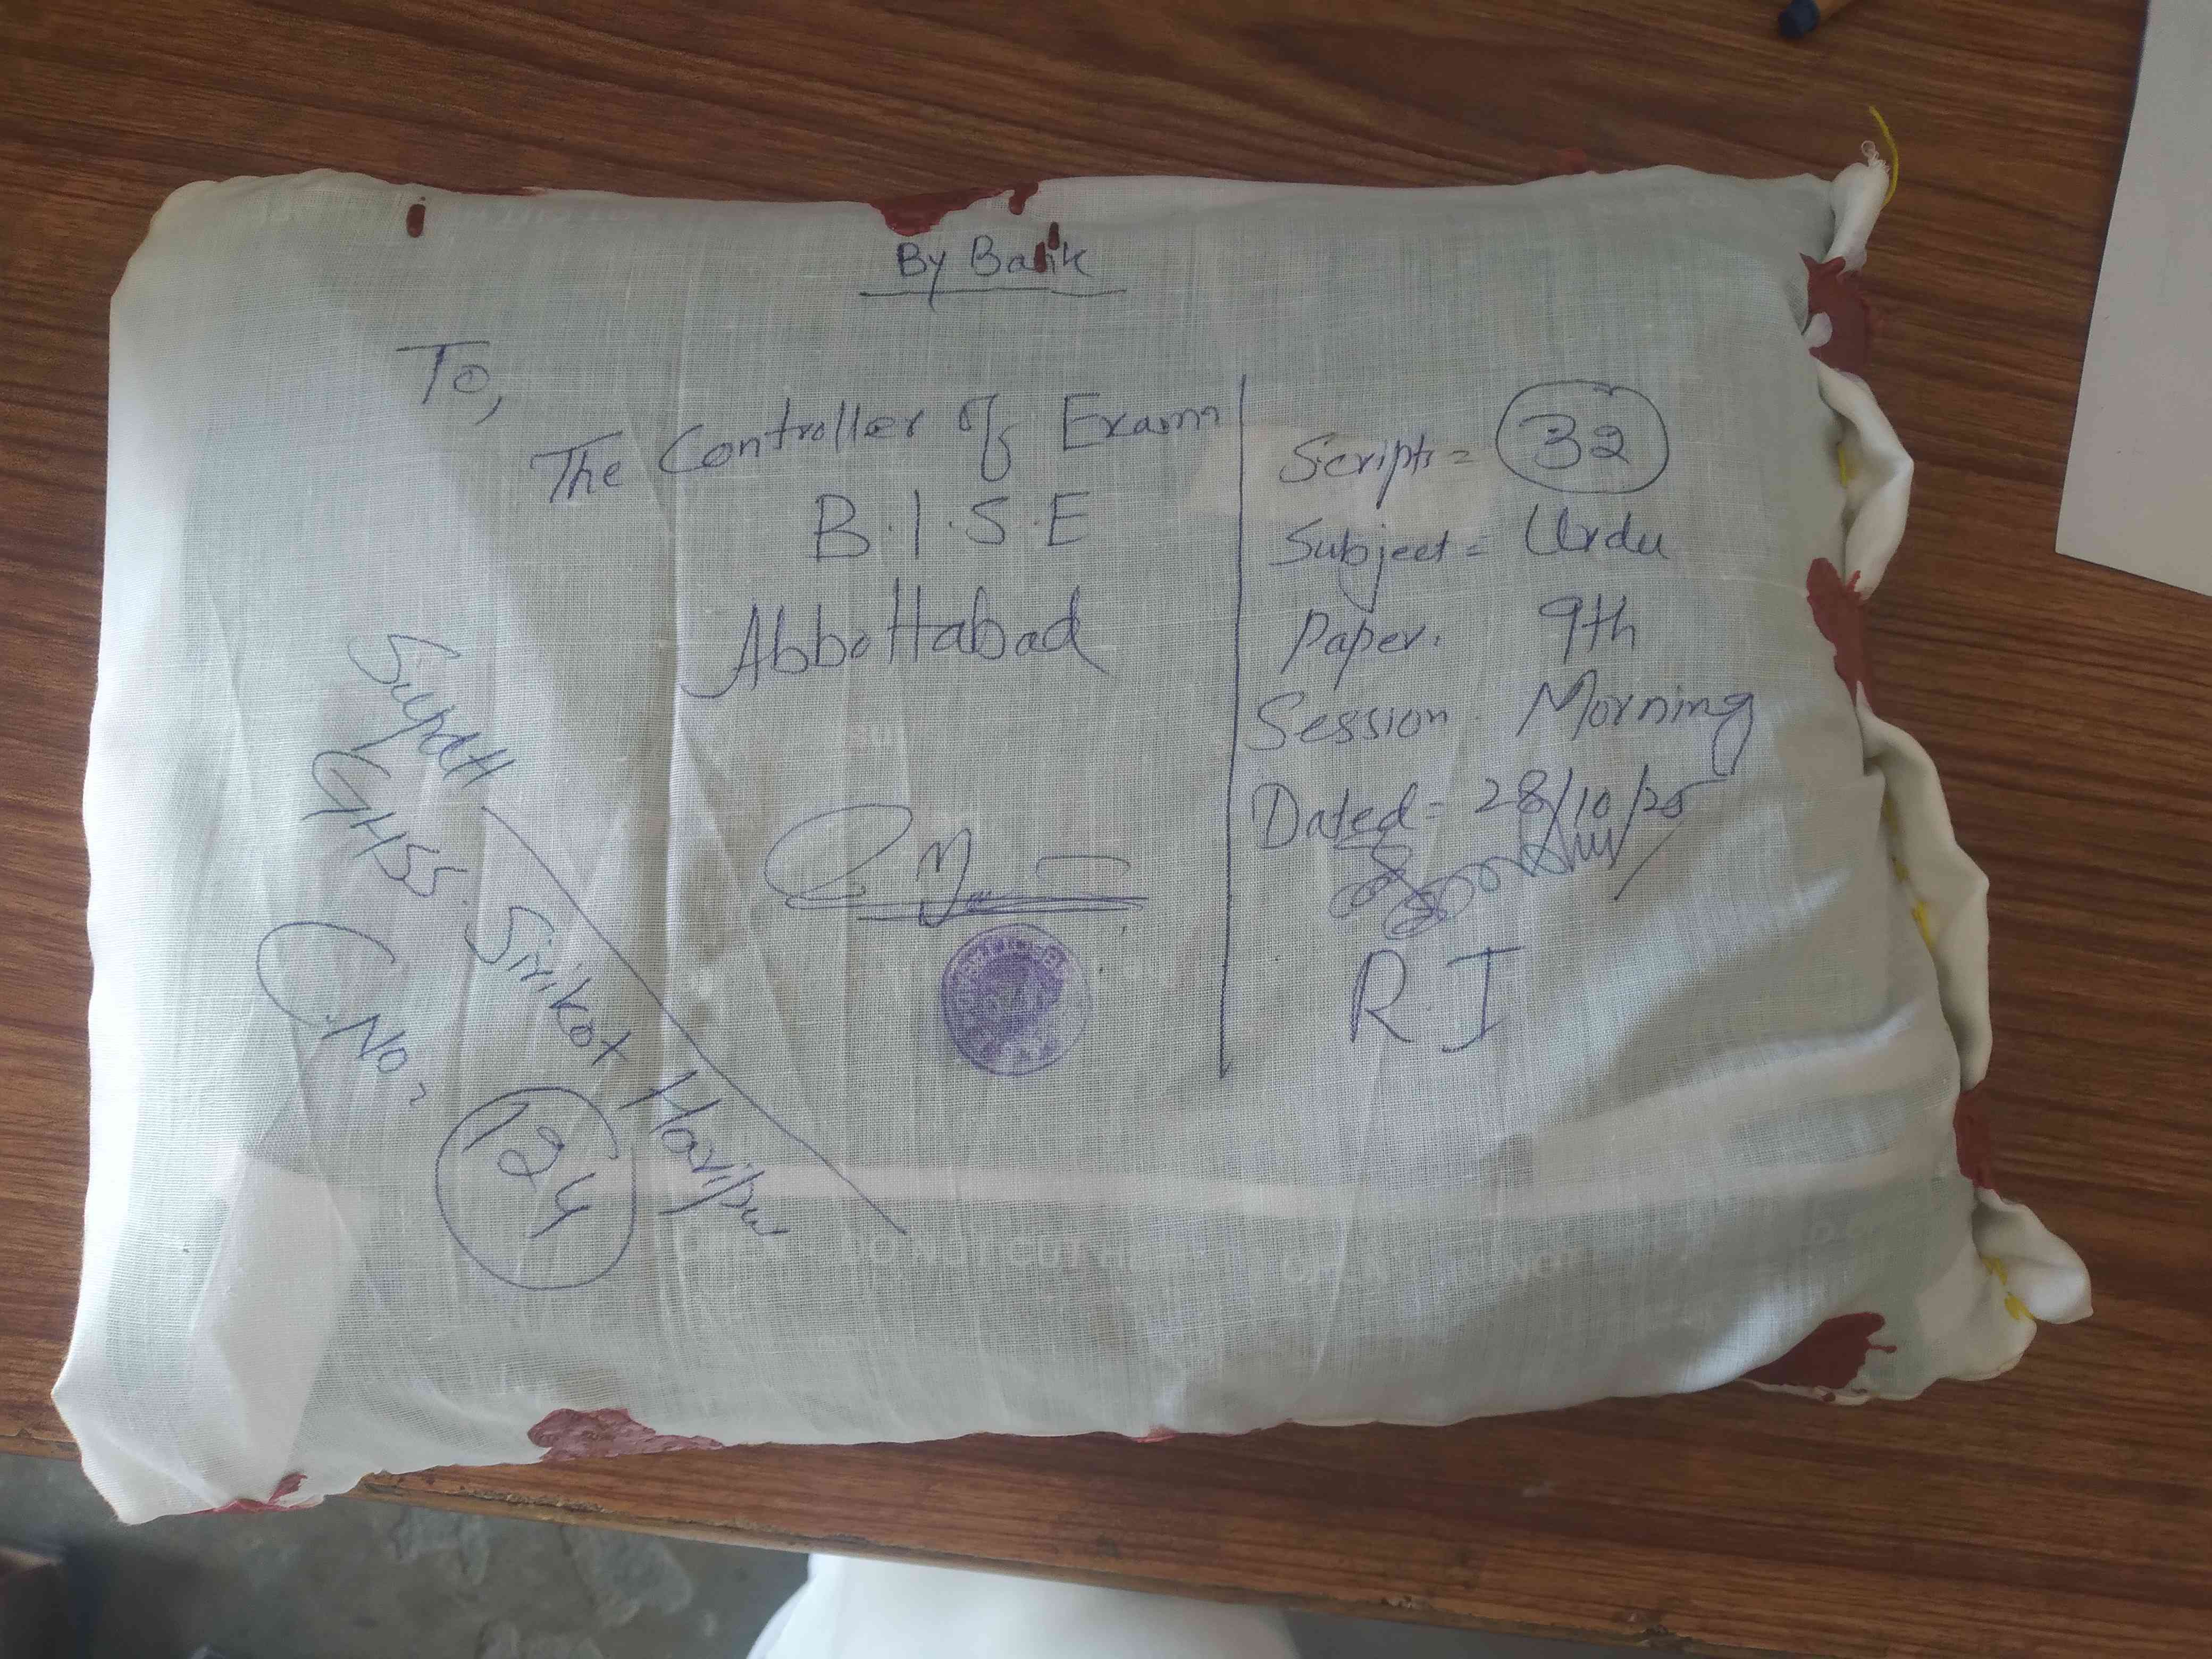 By Bank
To,
The Controller of Exam
B.I.S.E
Abbottabad
Scripts = 32
Subject = Urdu
Paper. 9th
Session. Morning
Dated = 28/10/25
R.I
Supdtt
GHSS. Sirikot Haripur
C.No.
124